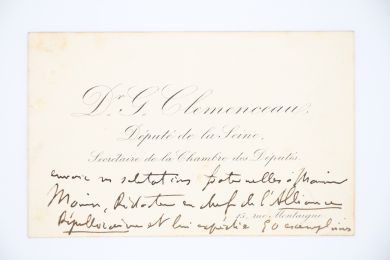 Dr. G. Clemenceau,
Député de la Seine,
Secrétaire de la Chambre des Députés.
envoie ses salutations fraternelles à Monsieur
Rédacteur en chef de l'Alliance
15, rue Montaigne
Républicaine et lui expédie 90 exemplaires